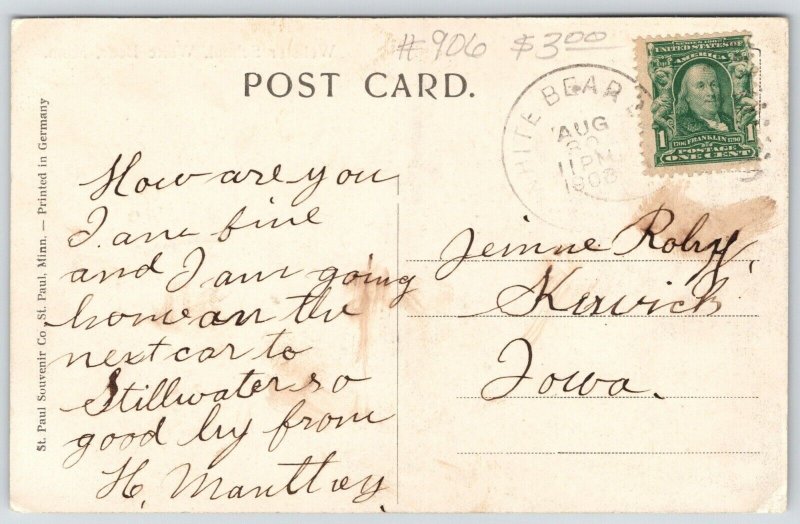 #906 $3.00
POST CARD.
WHITE BEAR
AUG
11 PM
1908
UNITED STATES OF
AMERICA
1 1
1706 FRANKLIN 1790
POSTAGE
ONE CENT
St. Paul Souvenir Co., St. Paul, Minn. — Printed in Germany
How are you
I am fine
and I am going
home on the
next car to
Stillwater so
good by from
H.
Roby,
Keswick
Iowa.